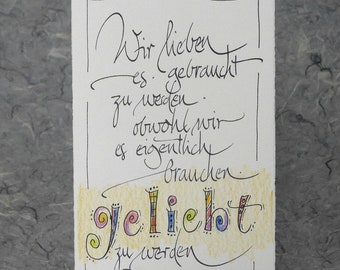 Wir lieben
es gebraucht
zu werden.
obwohl wir
es eigentlich
brauchen
geliebt
zu werden